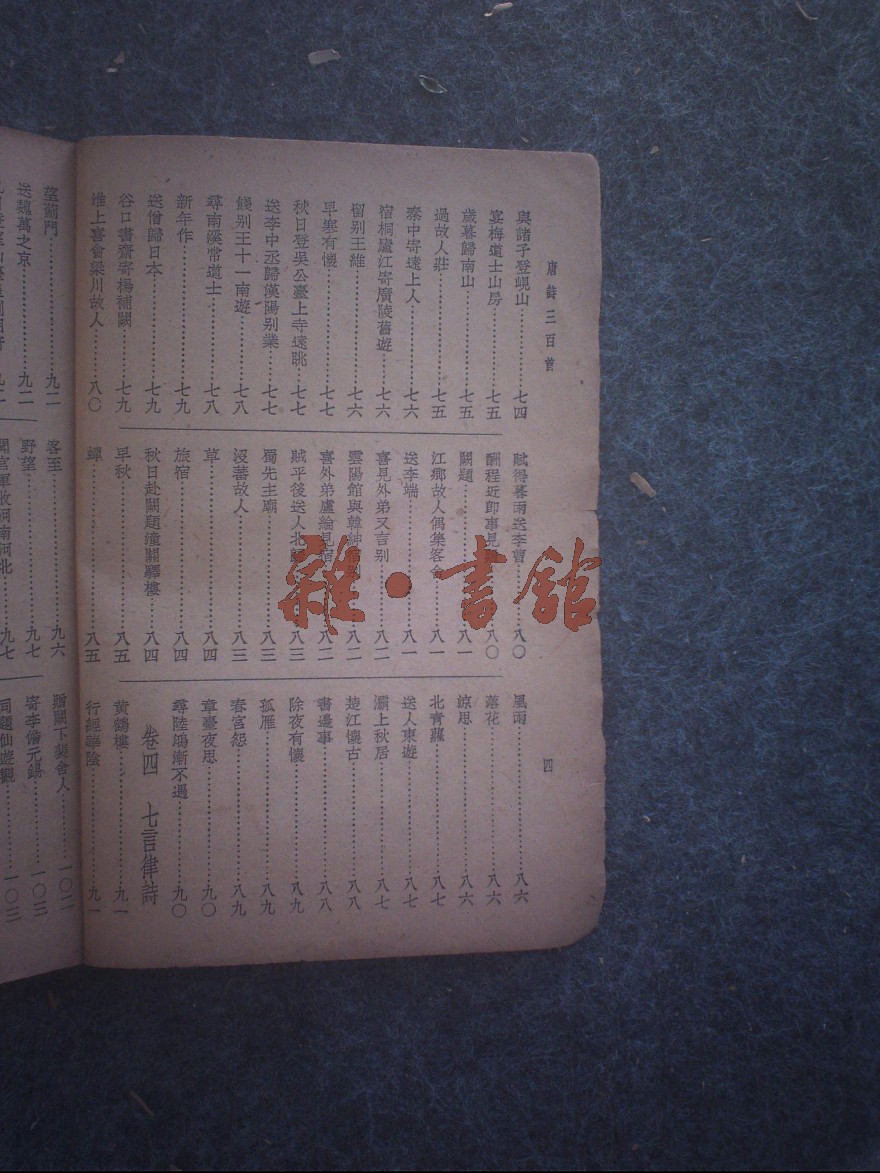 唐詩三百首
四
與諸子登峴山⋯⋯七四
宴梅道士山房⋯⋯七五
歲暮歸南山⋯⋯七五
過故人莊⋯⋯七五
秦中寄遠上人⋯⋯七六
宿桐廬江寄廣陵舊遊⋯⋯七六
留別王維⋯⋯七六
早寒有懷⋯⋯七七
秋日登吳公臺上寺遠眺⋯⋯七七
送李中丞歸漢陽別業⋯⋯七七
餞別王十一南遊⋯⋯七八
尋南溪常道士⋯⋯七八
新年作⋯⋯七九
送僧歸日本⋯⋯七九
谷口書齋寄楊補闕⋯⋯七九
淮上喜會梁川故人⋯⋯八〇
賦得暮雨送李曹⋯⋯八〇
酬程近卽事見⋯⋯八〇
闕題⋯⋯八一
江鄉故人偶集客舍⋯⋯八一
送李端⋯⋯八一
喜見外弟又言別⋯⋯八二
雲陽館與韓紳宿別⋯⋯八二
喜外弟盧綸見宿⋯⋯八二
賊平後送人北歸⋯⋯八三
蜀先主廟⋯⋯八三
沒蕃故人⋯⋯八三
草⋯⋯八四
旅宿⋯⋯八四
秋日赴闕題潼關驛樓⋯⋯八四
早秋⋯⋯八五
蟬⋯⋯八五
風雨⋯⋯八六
落花⋯⋯八六
涼思⋯⋯八六
北青蘿⋯⋯八七
送人東遊⋯⋯八七
灞上秋居⋯⋯八七
楚江懷古⋯⋯八八
書邊事⋯⋯八八
除夜有懷⋯⋯八九
孤雁⋯⋯八九
春宮怨⋯⋯八九
章臺夜思⋯⋯九〇
尋陸鴻漸不遇⋯⋯九〇
卷四 七言律詩
黃鶴樓⋯⋯九一
行經華陰⋯⋯九一
望薊門⋯⋯九二
送魏萬之京⋯⋯九二
客至⋯⋯九六
野望⋯⋯九七
聞官軍收河南河北⋯⋯九七
贈闕下裴舍人⋯⋯一〇二
寄李儋元錫⋯⋯一〇三
同題仙遊觀⋯⋯一〇三
雜·書館